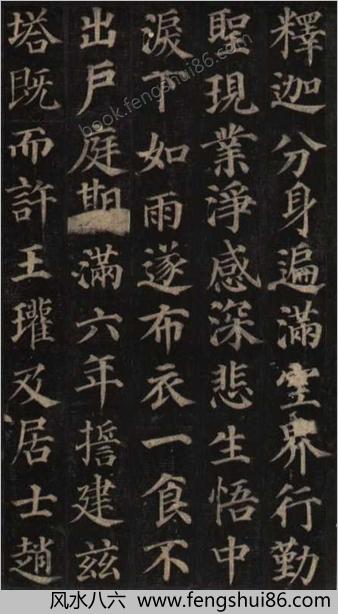 釋迦分身遍滿空界行勤
聖現業淨感深悲生悟中
淚下如雨遂布衣一食不
出戶庭期滿六年誓建茲
塔既而許王瓘及居士趙
book.fengshui86.com
风水八六 www.fengshui86.com